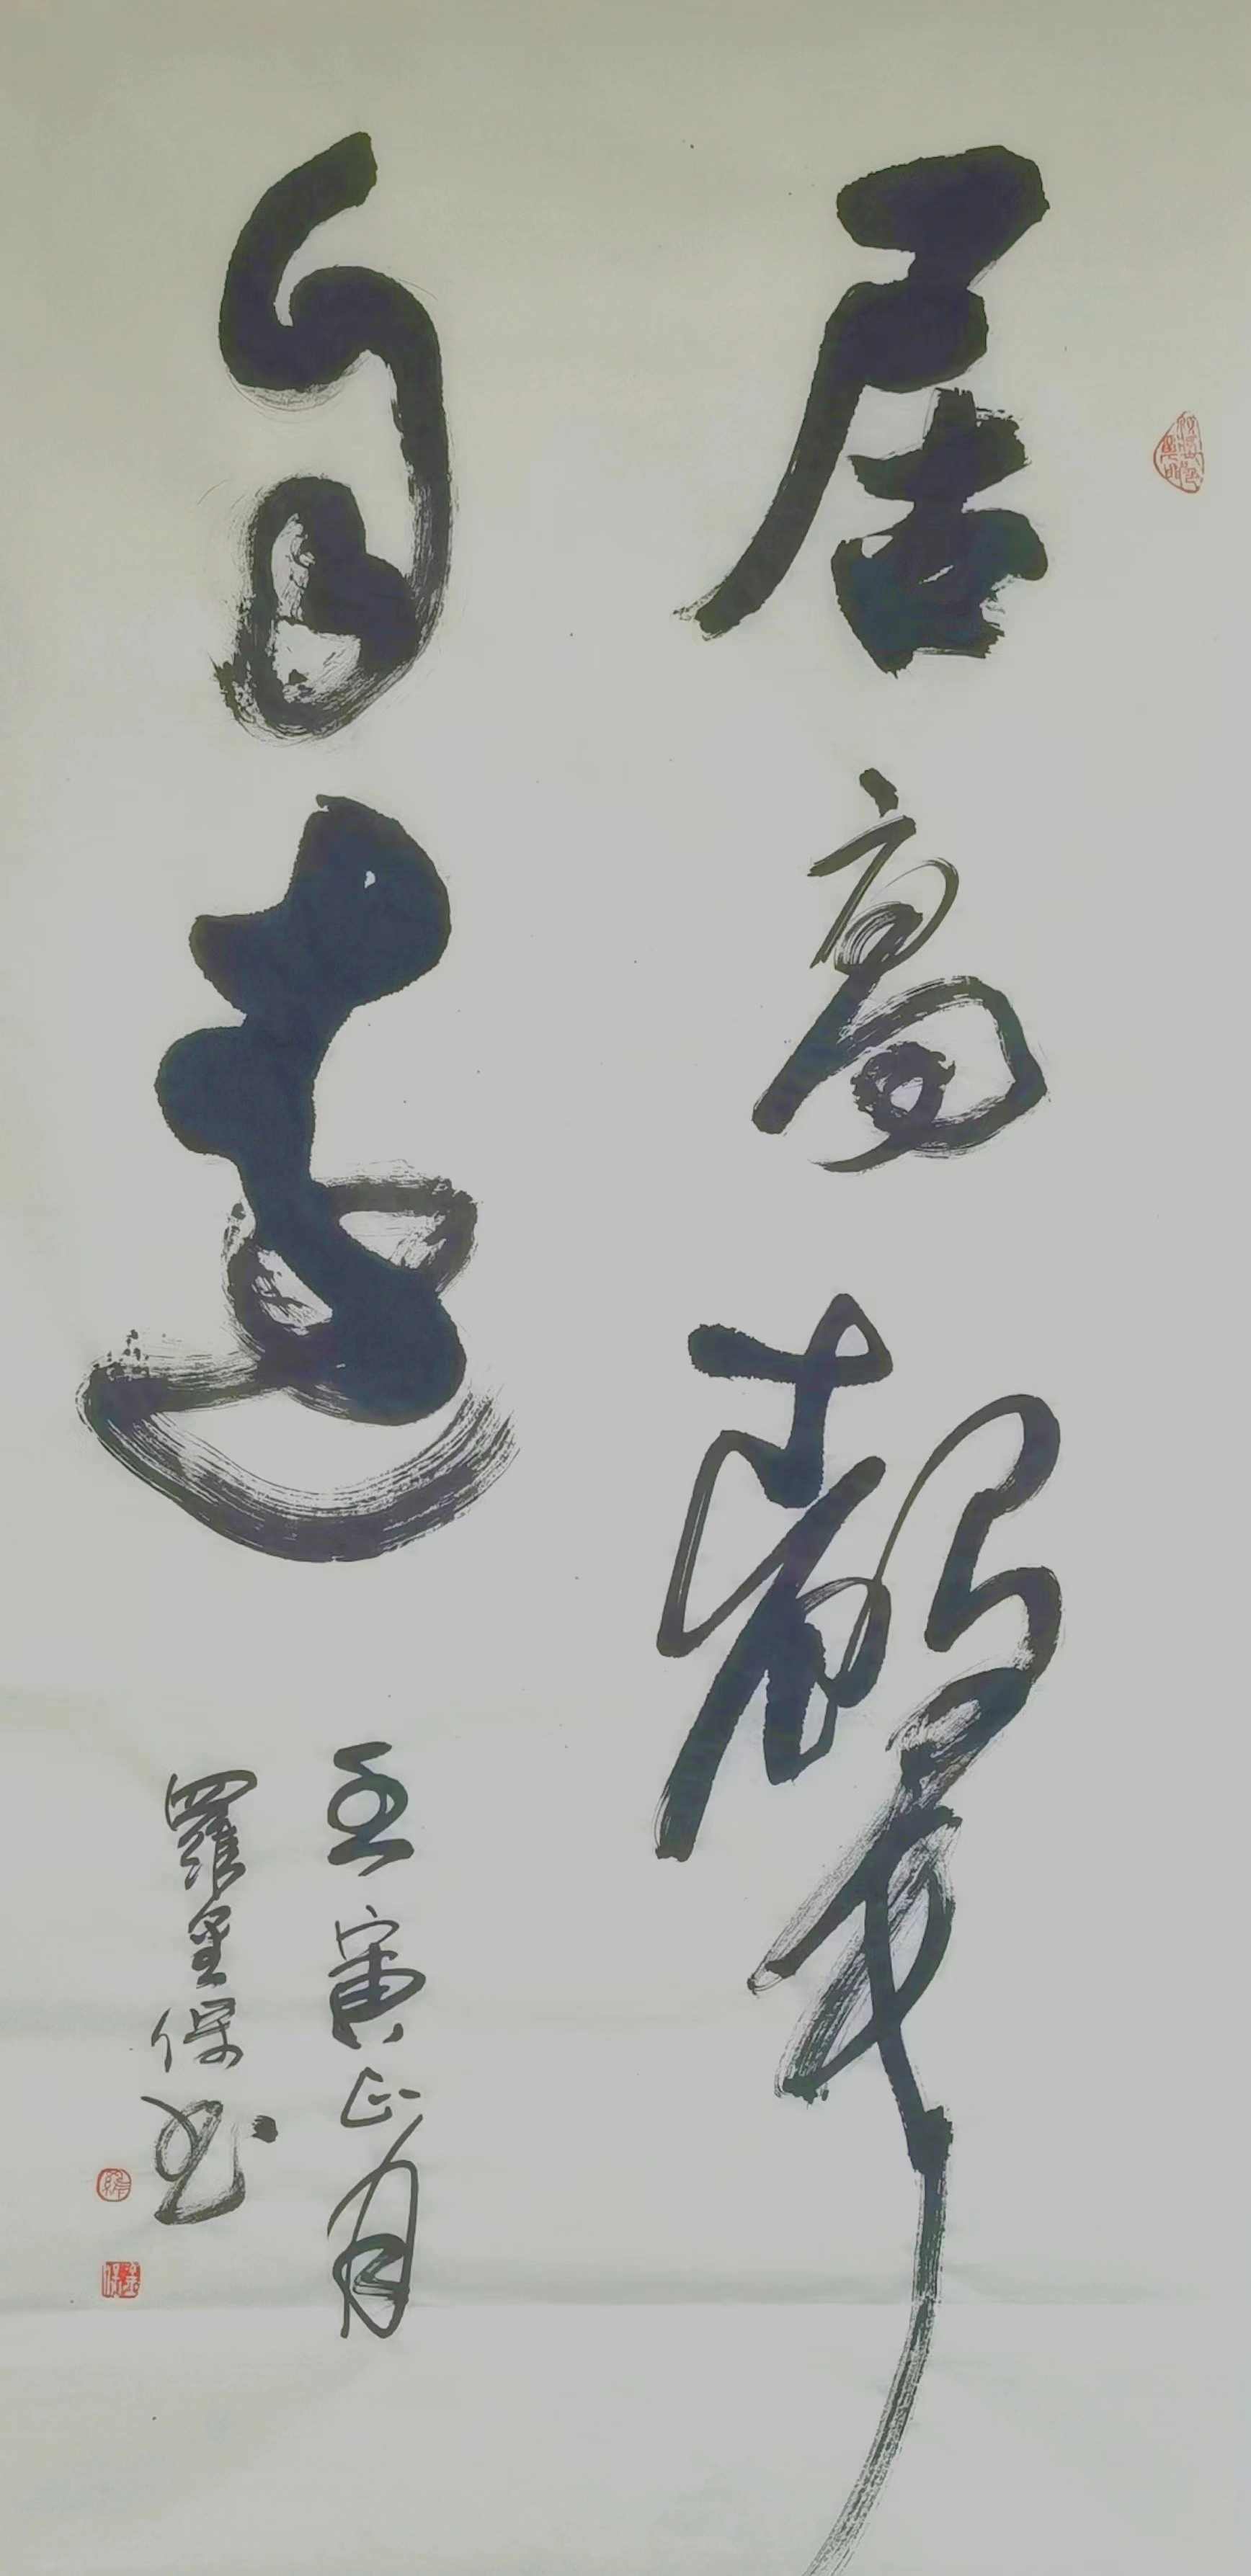 居高聲
自遠
壬寅正月
羅圣保书